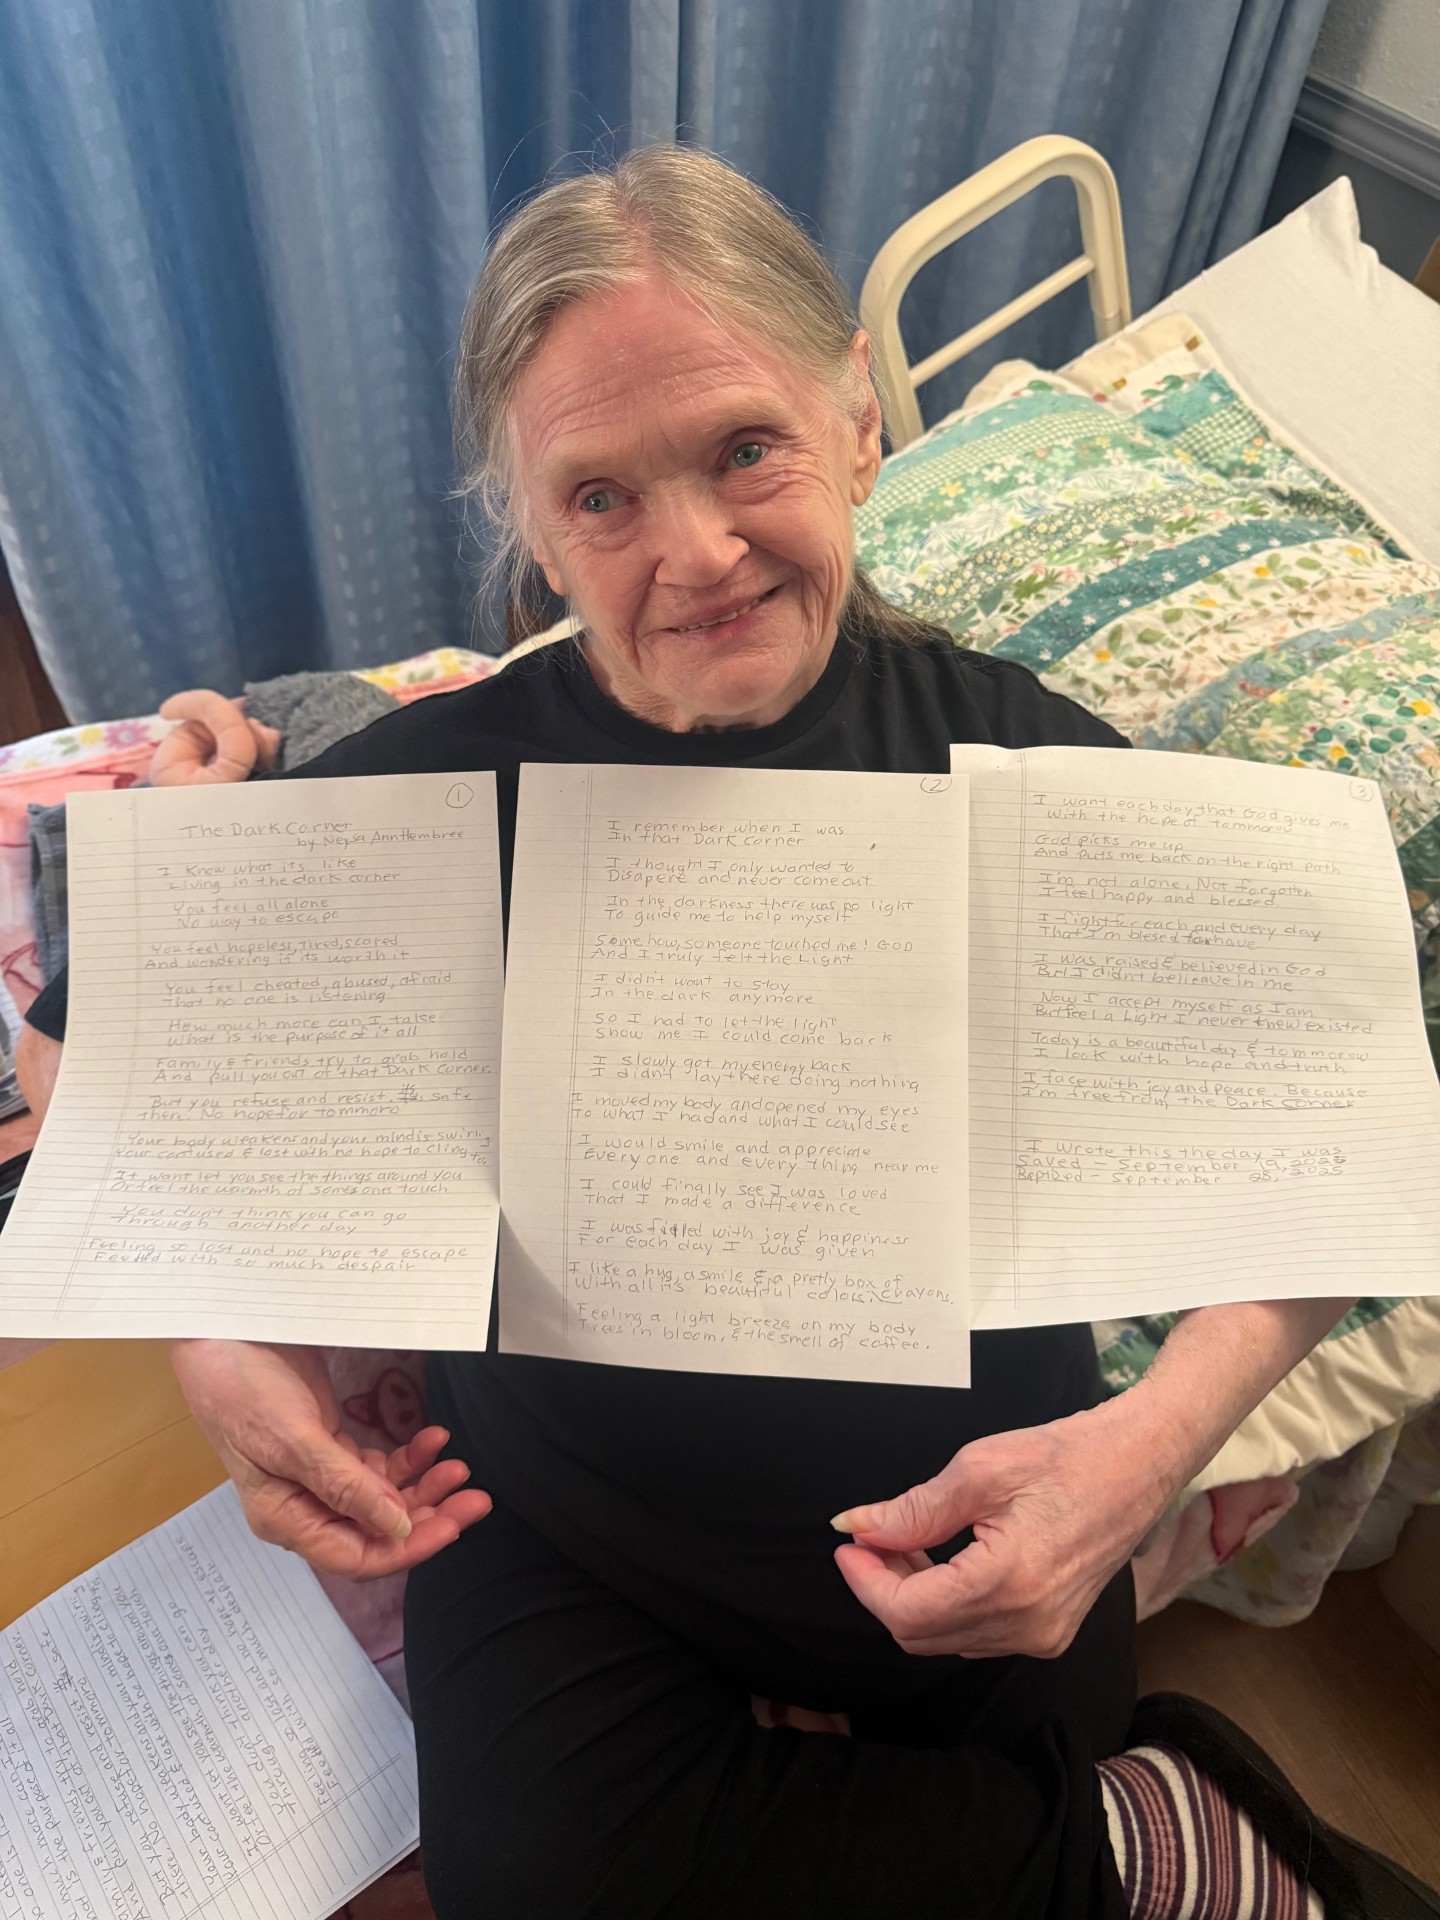 1
The Dark Corner
by Neysa Ann Hembree
I Know what its like
Living in the dark corner
You feel all alone
No way to escape
You feel hopeless, tired, scared
And wondering if its worth it
You feel cheated, abused, afraid
That no one is listening
How much more can I take
What is the purpose of it all
Family & friends try to grab hold
And pull you out of that Dark Corner.
But you refuse and resist, its safe
there. No hope for tommoro
Your body weakens and your mind is swirling
Your confused & lost with no hope to cling to.
It want let you see the things around you
Or feel the warmth of someones touch
You don't think you can go
through another day
Feeling so lost and no hope to escape
Feelled with so much despair
2
I remember when I was
In that Dark corner
I thought I only wanted to
Disapere and never come out
In the darkness there was no light
To guide me to help myself
Some how, someone touched me! GOD
And I truly felt the Light
I didn't want to stay
In the dark anymore
So I had to let the light
Show me I could come back
I slowly got my energy back
I didn't lay there doing nothing
I moved my body and opened my eyes
To what I had and what I could see
I would smile and appreciate
Everyone and every thing near me
I could finally see I was loved
That I made a difference
I was filled with joy & happiness
For each day I was given
I like a hug, a smile & a pretty box of
With all its beautiful colors. crayons.
Feeling a light breeze on my body
Trees in bloom, & the smell of coffee.
3
I want each day that God gives me
With the hope of tommorow
God picks me up
And puts me back on the right path
I'm not alone, Not forgotten
I feel happy and blessed.
I fight for each and every day
That I'm blesed to have
I was raised & believed in God
But I didn't belieave in me
Now I accept myself as I am
But feel a Light I never knew existed
Today is a beautiful day & tommorow
I look with hope and truth
I face with joy and peace. Because
I'm free from the Dark Corner
I wrote this the day I was
Saved - September 19, 2025
Baptized - September 28, 2025
what is the purpose of it all
And pull you out of that Dark Corner.
But you refuse and resist, its safe
there. No hope for tommoro
Your body weakens and your mind is swirling
Your confused & lost with no hope to cling to.
It want let you see the things around you
Or feel the warmth of someones touch
You don't think you can go
through another day
Feeling so lost and no hope to escape
Feelled with so much despair